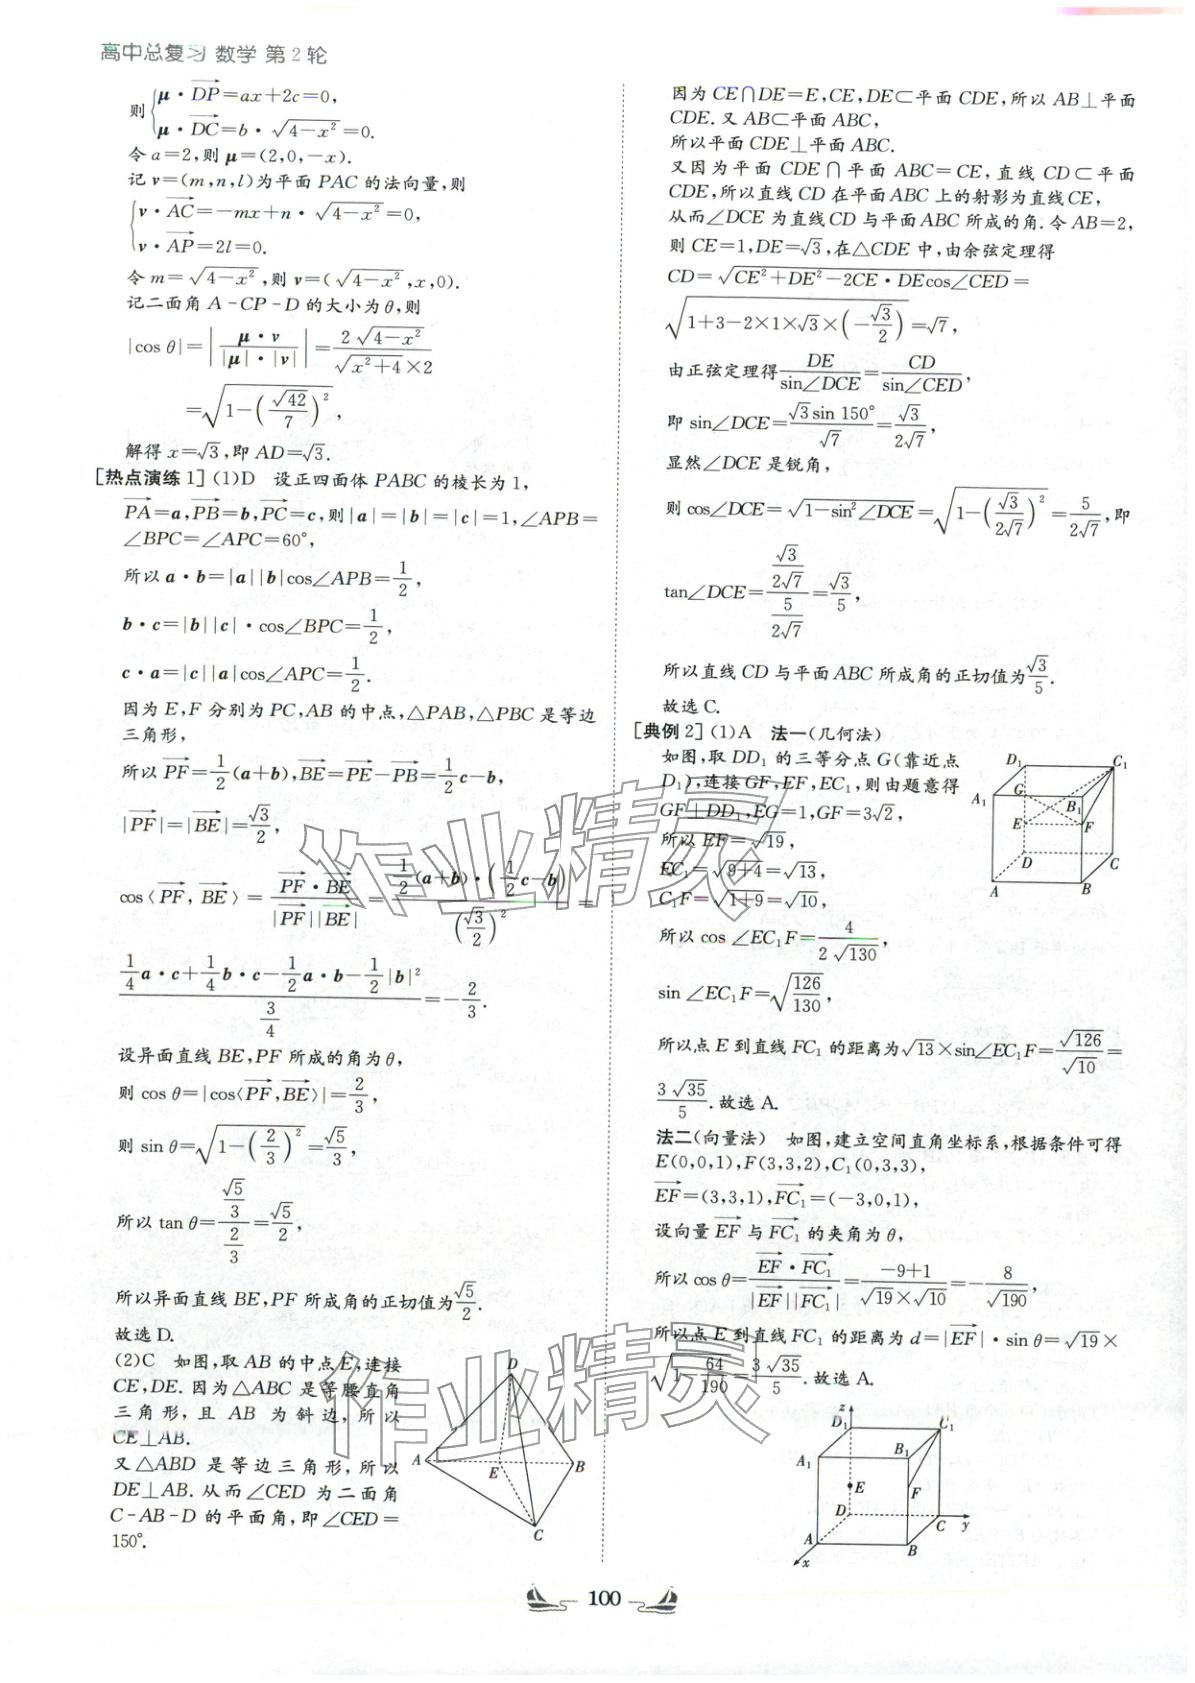 高中总复习 数学 第2轮
则{μ·DP=ax+2c=0,
μ·DC=b·√(4-x²)=0.
令a=2,则μ=(2,0,-x).
记v=(m,n,l)为平面PAC的法向量,则
{v·AC=-mx+n·√(4-x²)=0,
v·AP=2l=0.
令m=√(4-x²),则v=(√(4-x²),x,0).
记二面角A-CP-D的大小为θ,则
|cos θ|=|μ·v/(|μ|·|v|)|=2√(4-x²)/(√(x²+4)×2)
=√(1-(√42/7)²),
解得x=√3,即AD=√3.
[热点演练1](1)D 设正四面体PABC的棱长为1,
PA=a,PB=b,PC=c,则|a|=|b|=|c|=1,∠APB=
∠BPC=∠APC=60°,
所以a·b=|a||b|cos∠APB=1/2,
b·c=|b||c|·cos∠BPC=1/2,
c·a=|c||a|cos∠APC=1/2.
因为E,F分别为PC,AB的中点,△PAB,△PBC是等边
三角形,
所以PF=1/2(a+b),BE=PE-PB=1/2c-b,
|PF|=|BE|=√3/2,
cos〈PF,BE〉=PF·BE/(|PF||BE|)=1/2(a+b)·(1/2c-b)/(√3/2)²=
(1/4a·c+1/4b·c-1/2a·b-1/2|b|²)/(3/4)=-2/3.
设异面直线BE,PF所成的角为θ,
则cos θ=|cos〈PF,BE〉|=2/3,
则sin θ=√(1-(2/3)²)=√5/3,
所以tan θ=(√5/3)/(2/3)=√5/2,
所以异面直线BE,PF所成角的正切值为√5/2.
故选D.
(2)C 如图,取AB的中点E,连接
CE,DE.因为△ABC是等腰直角
三角形,且AB为斜边,所以
CE⊥AB.
又△ABD是等边三角形,所以
DE⊥AB.从而∠CED为二面角
C-AB-D的平面角,即∠CED=
150°.
D
A
E
B
C
因为CE∩DE=E,CE,DE⊂平面CDE,所以AB⊥平面
CDE.又AB⊂平面ABC,
所以平面CDE⊥平面ABC.
又因为平面CDE∩平面ABC=CE,直线CD⊂平面
CDE,所以直线CD在平面ABC上的射影为直线CE,
从而∠DCE为直线CD与平面ABC所成的角.令AB=2,
则CE=1,DE=√3,在△CDE中,由余弦定理得
CD=√(CE²+DE²-2CE·DEcos∠CED)=
√(1+3-2×1×√3×(-√3/2))=√7,
由正弦定理得DE/sin∠DCE=CD/sin∠CED,
即sin∠DCE=√3sin 150°/√7=√3/2√7,
显然∠DCE是锐角,
则cos∠DCE=√(1-sin²∠DCE)=√(1-(√3/2√7)²)=5/2√7,即
tan∠DCE=(√3/2√7)/(5/2√7)=√3/5,
所以直线CD与平面ABC所成角的正切值为√3/5.
故选C.
[典例2](1)A 法一(几何法)
如图,取DD₁的三等分点G(靠近点
D₁),连接GF,EF,EC₁,则由题意得
GF⊥DD₁,EG=1,GF=3√2,
所以EF=√19,
EC₁=√(9+4)=√13,
C₁F=√(1+9)=√10,
D₁
C₁
G
A₁
B₁
E
F
D
C
A
B
所以cos ∠EC₁F=4/(2√130),
sin ∠EC₁F=√(126/130),
所以点E到直线FC₁的距离为√13×sin∠EC₁F=√126/√10=
3√35/5.故选A.
法二(向量法) 如图,建立空间直角坐标系,根据条件可得
E(0,0,1),F(3,3,2),C₁(0,3,3),
EF=(3,3,1),FC₁=(-3,0,1),
设向量EF与FC₁的夹角为θ,
所以cos θ=EF·FC₁/(|EF||FC₁|)=(-9+1)/(√19×√10)=-8/√190,
所以点E到直线FC₁的距离为d=|EF|·sin θ=√19×
√(1-64/190)=3√35/5.故选A.
z
D₁
C₁
A₁
B₁
E
F
D
C
y
A
B
x
100
作业精灵
作业精灵